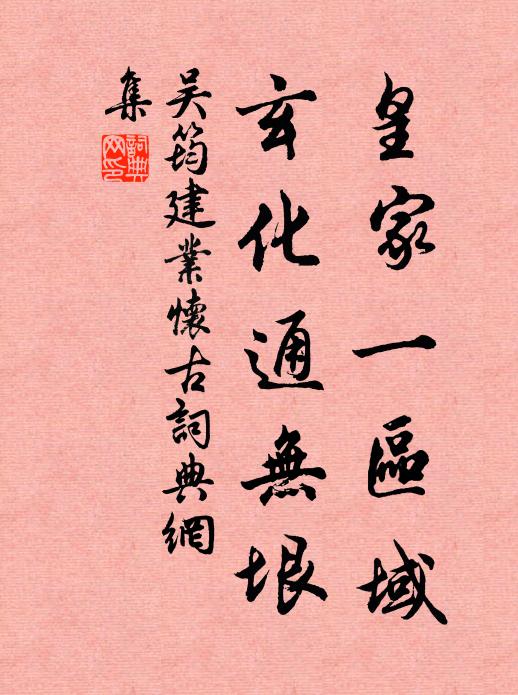 皇家一區域
玄化通無垠
吴筠建業懷古詞典網
集
詞典
网印